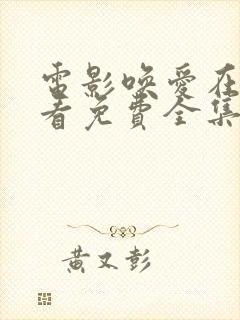 電影喚愛在
看免費全集
黃又彭